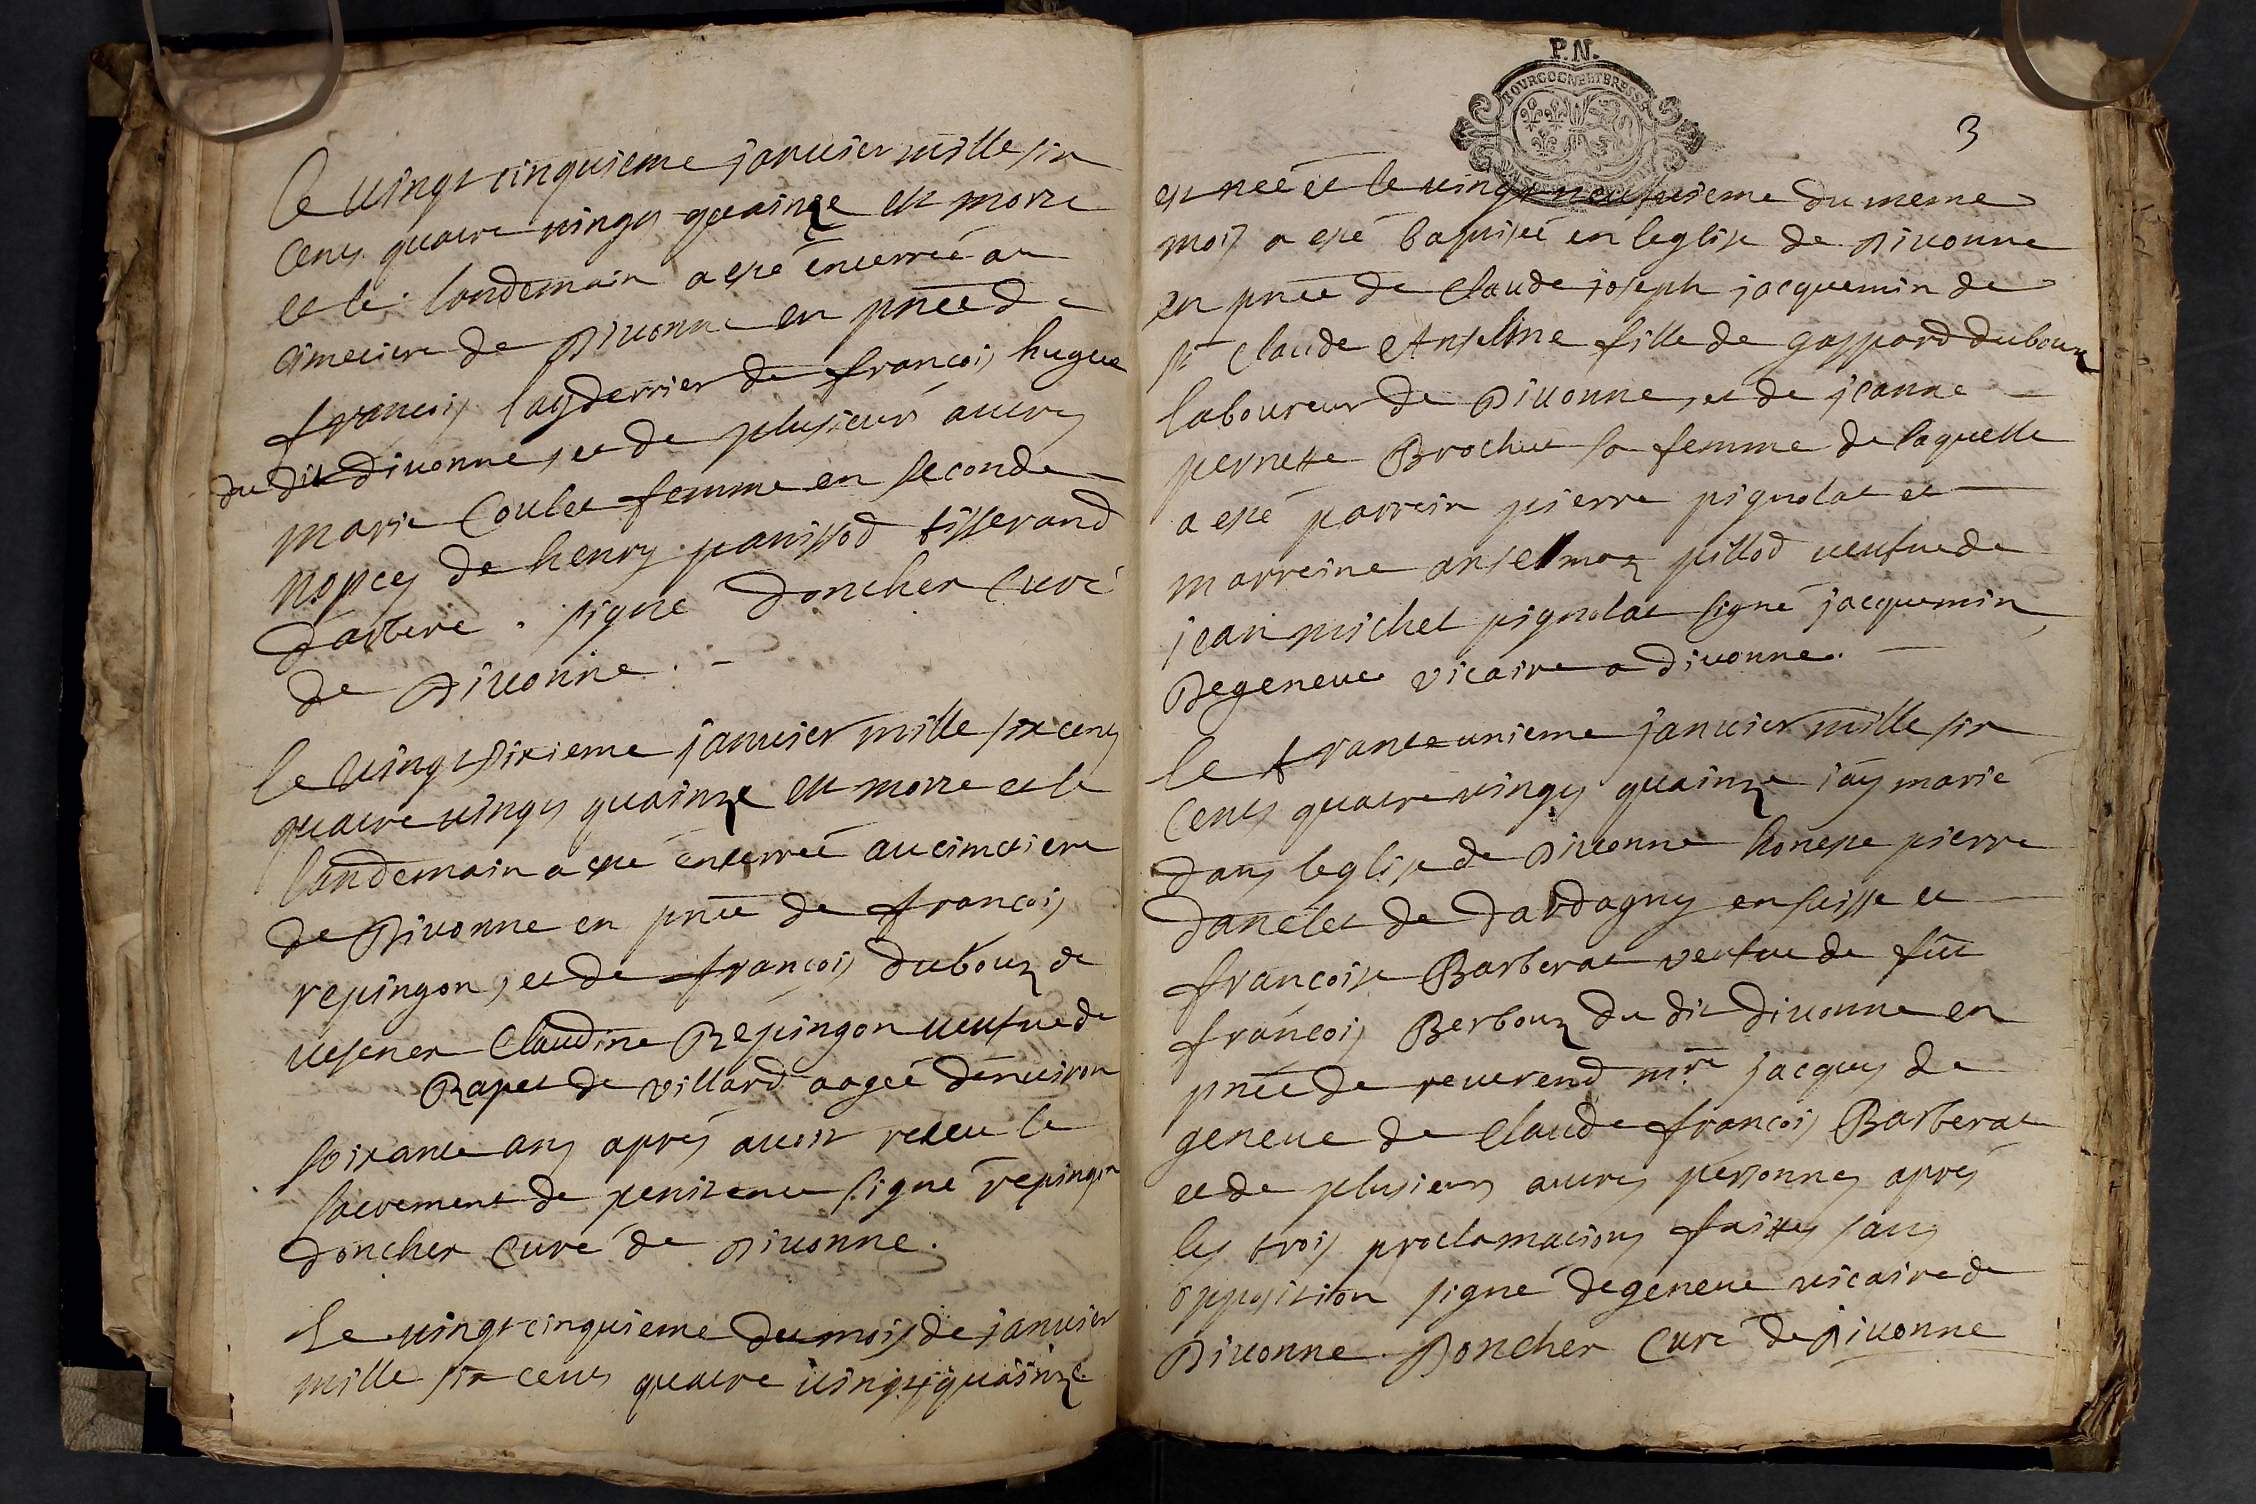 le vingt cinquieme januier mille six
cents quatre vingts quainze est morte
et le landemain a esté enterrée au
cimetiere de Diuonne en pnēe de
francois layderrier de francois hugue
du dit diuonne, et de plusieurs autres
marie Coulet femme en seconde
nopces de henry panissod tisserand
darbere. signé Doncher Curé
de Diuonne. –
le vingt sixieme januier mille six cents
quatre vingts quainze est morte et le
landemain a esté enterrée au cimetiere
de Diuonne en pnēe de francois
repingon, et de françois dubouz de
vesenex Claudine Repingon veufue de
Rapet de villard aagée denuiron
soixante ans aprés auoir receu le
sacrement de penitence signé repingon
doncher curé de Diuonne.
Le vingt cinquieme du mois de januier
mille six cents quatre vingts quainze
P.N.
BOURGOGNE ET BRESSE
3
est neé et le vingt neufuieme du meme
mois a esté baptiseé en leglise de Diuonne
en pnēe de Claude joseph jacquemin de
st Claude Anselme fille de gaspard dubouz
laboureur de Diuonne, et de jeanne
pernette Brochet sa femme de laquelle
a esté parrein pierre pignolat et
marreine anselmaz pillod veufue de
jean michel pignolat signé jacquemin,
Degeneue vicaire a diuonne.
le trante unieme januier mille six
cents quatre vingts quainze jay marié
dans leglise de Diuonne honeste pierre
danclet de dardagny en suisse et
françoise Barberat veufue de fût
françois Berbouz du dit diuonne en
pnēe de reuerend mre jacques de
geneue de Claude françois Barberat
et de plusieurs autres personnes aprés
les trois proclamations faittes sans
opposition signé degeneue vicaire de
Diuonne. Doncher Curé de Diuonne